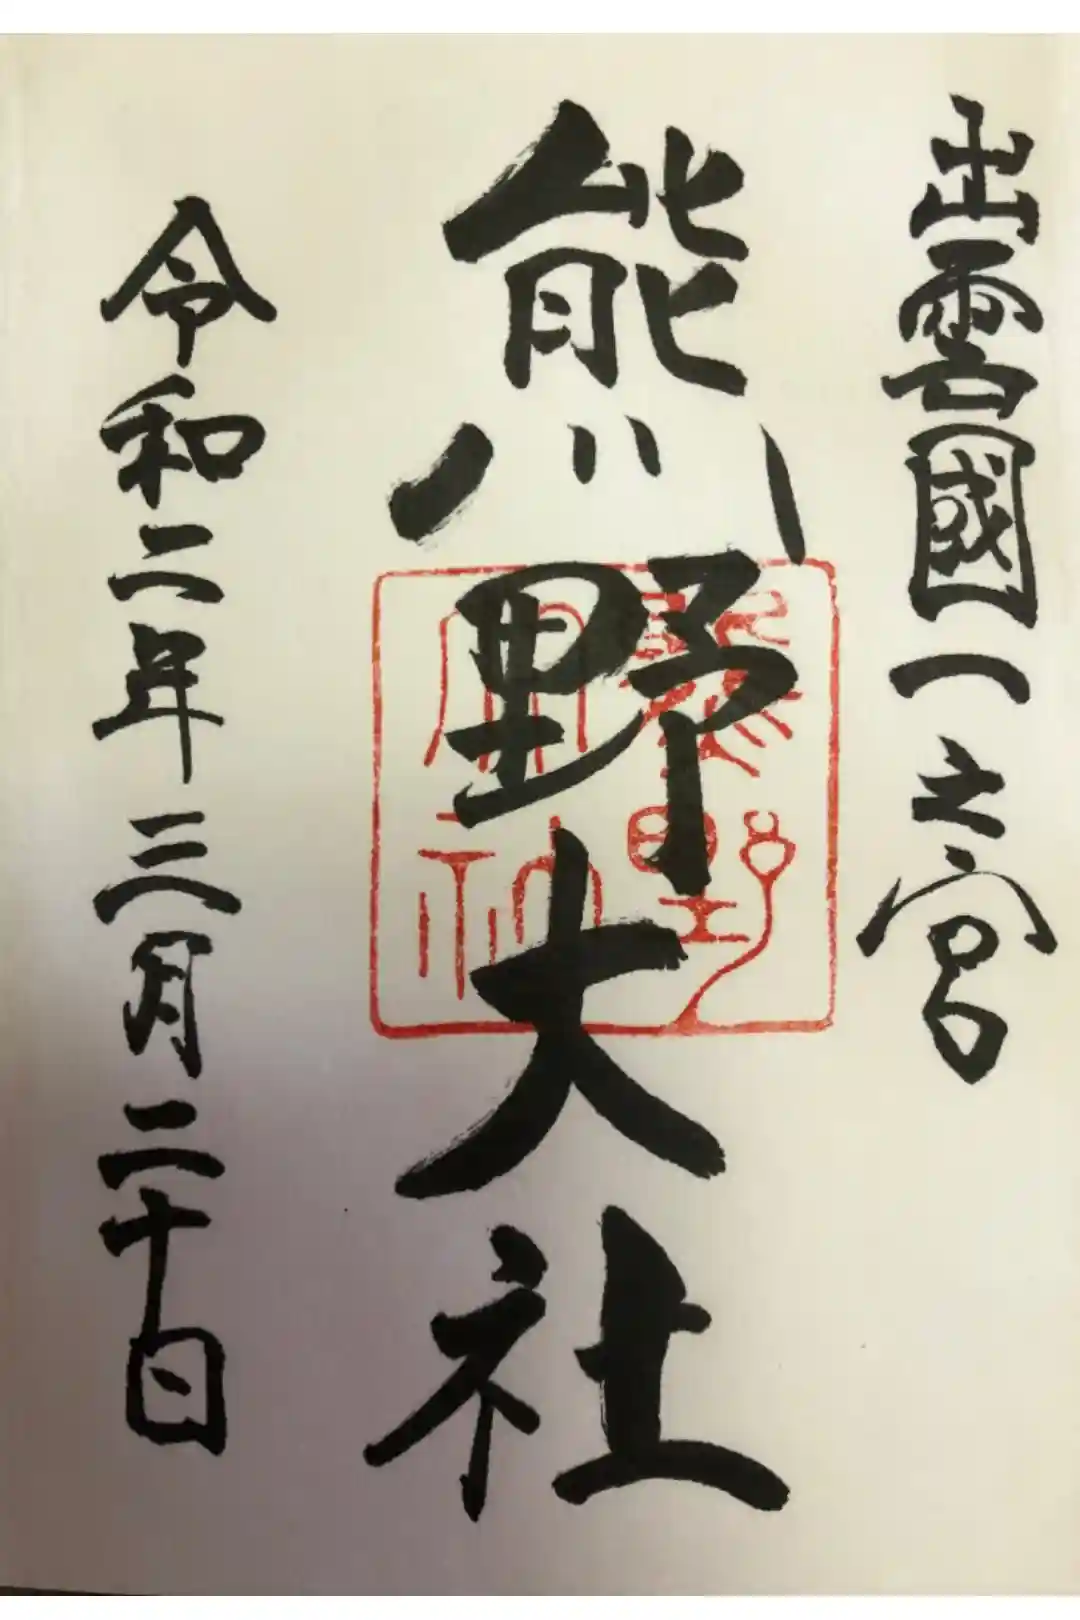 出雲國一之宮
熊野大社
熊野大社
令和二年三月二十日